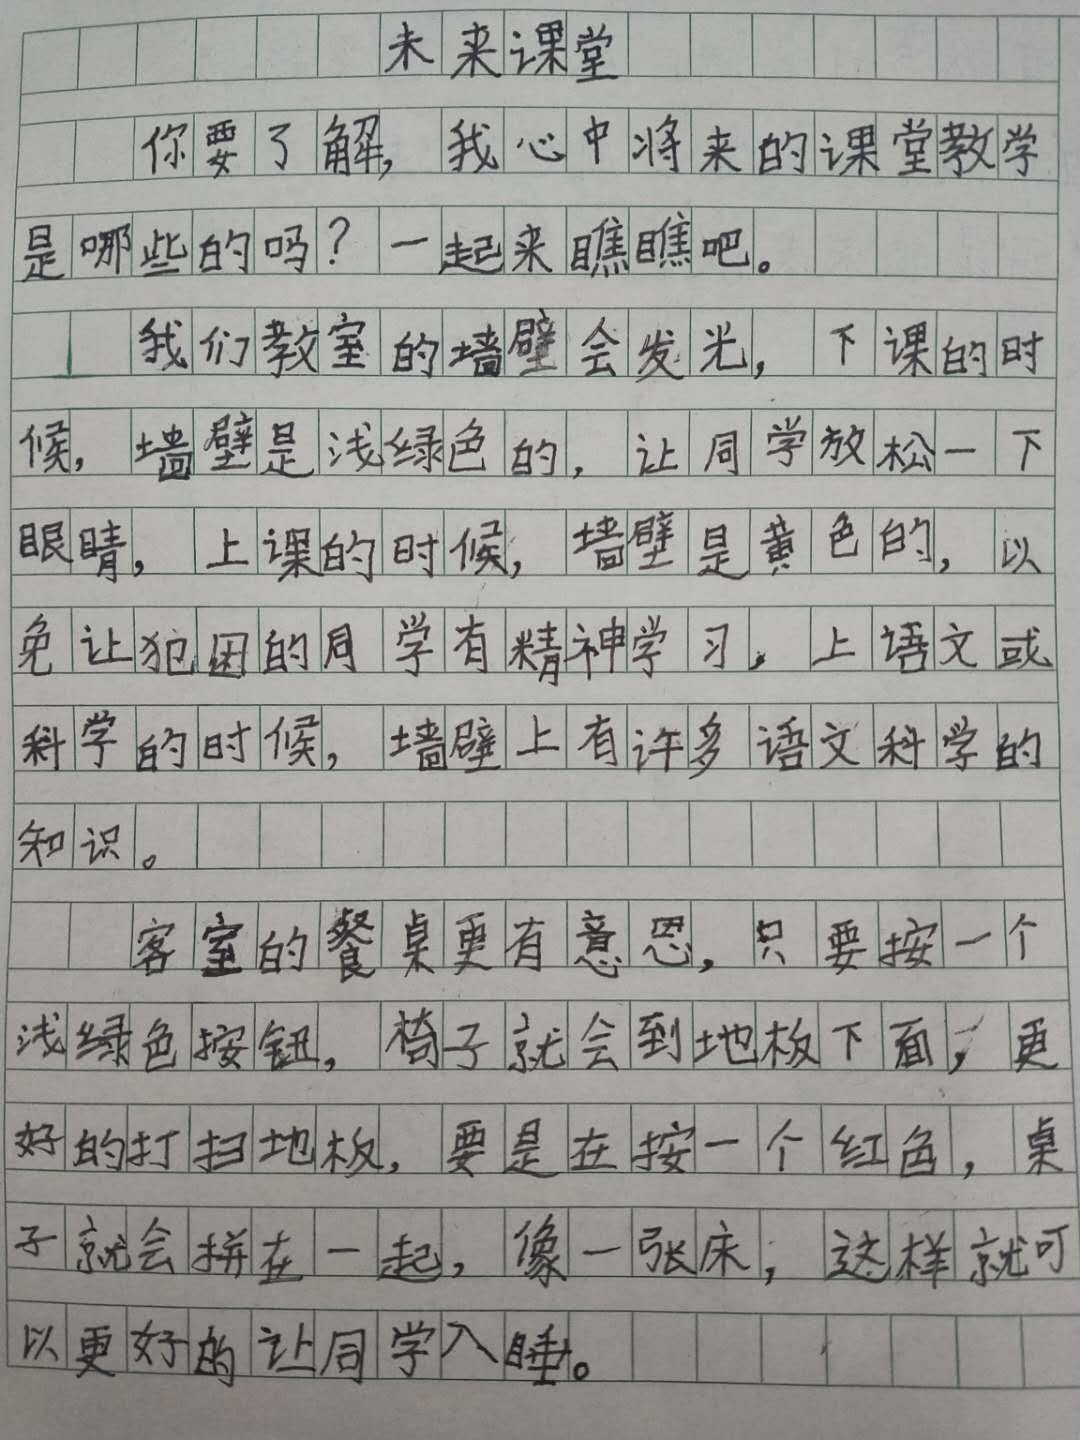 未来课堂
你要了解,我心中将来的课堂教学
是哪些的吗?一起来瞧瞧吧。
我们教室的墙壁会发光,下课的时
候,墙壁是浅绿色的,让同学放松一下
眼睛,上课的时候,墙壁是黄色的,以
免让犯困的同学有精神学习。上语文或
科学的时候,墙壁上有许多语文科学的
知识。
客室的餐桌更有意思,只要按一个
浅绿色按钮,椅子就会到地板下面,更
好的打扫地板,要是在按一个红色,桌
子就会拼在一起,像一张床,这样就可
以更好的让同学入睡。